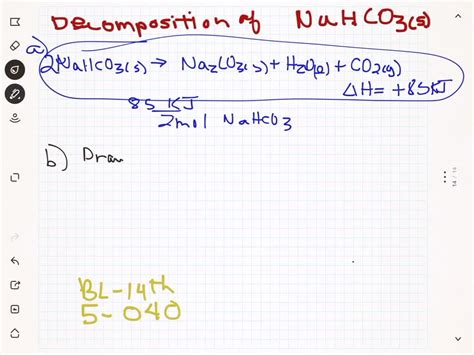 Decomposition of NaHCO3(s)
a) 2NaHCO3(s) → Na2CO3(s) + H2O(l) + CO2(g)
ΔH = +85KJ
85 KJ
2mol NaHCO3
b) Draw
14 / 14
BL-14th
5-040